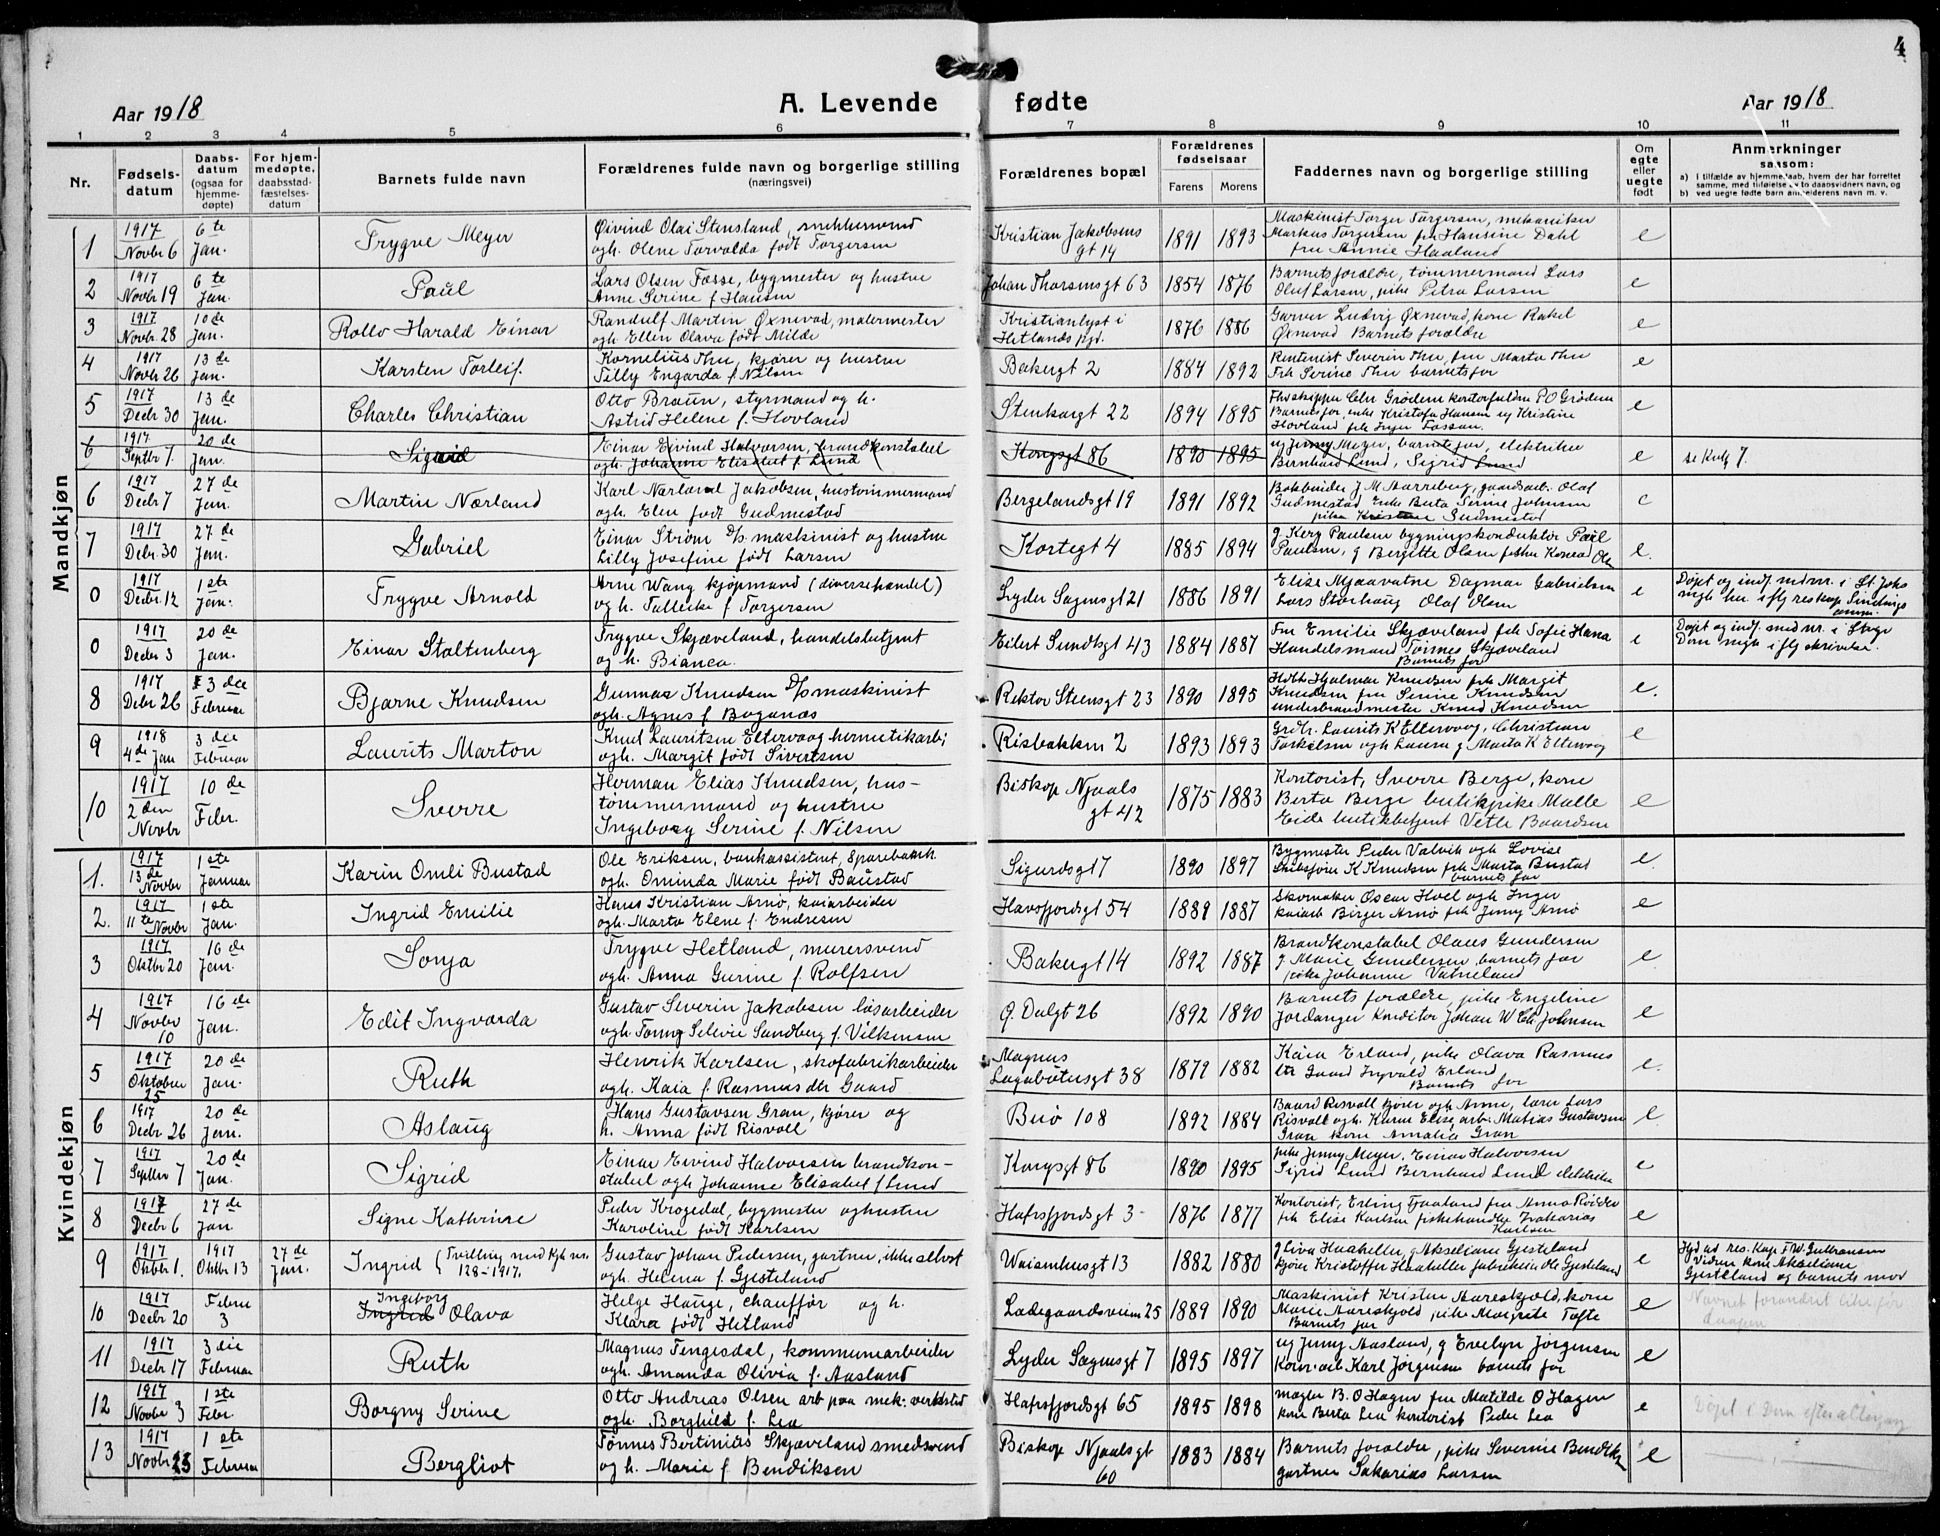 4
Aar 1918
A. Levende fødte
Aar 1918
1 2 3 4 5 6 7 8 9 10 11
Nr.
Fødsels-
datum
Daabs-
datum
(ogsaa for
hjemme-
døpte)
For hjem-
medøpte,
daabsstad-
fæstelses-
datum
Barnets fulde navn
Forældrenes fulde navn og borgerlige stilling
(næringsvei)
Forældrenes bopæl
Forældrenes
fødselsaar
Farens Morens
Faddernes navn og borgerlige stilling
Om
egte
eller
uegte
født
Anmerkninger
saasom:
a) I tilfælde av hjemmedaab, hvem der har forrettet
samme, med tilføielse av to daabsvidners navn, og
b) ved uegte fødte børn anmelderens navn m. v.
Mandkjøn
1 1917 Novbr 6 6te Jan. Trygve Meyer
Øivind Olai Stensland, snekkersvend
ogh. Olene Torvalda født Torgersen
Kristian Jakobsens gt 14 1891 1893
Maskinist Torger Torgersen, mekaniker
Markus Torgersen frk Hansine Dahl
fru Annie Haaland
e
2 1917 Novbr 19 6te Jan. Paul
Lars Olsen Fosse, bygmester og hustru
Anne Serine f Hansen
Johan Thorsensgt 63 1854 1876
Barnets forældre, tømmermand Lars
Oluf Larsen, pike Petra Larsen
e
3 1917 Novbr. 28 10de Jan. Rollo Harald Einar
Randulf Martin Øxnevad, malermester
ogh Ellen Olava født Milde
Kristianlyst i Hetlands pgd. 1876 1886
Garver Ludvig Øxnevad, kone Rakel
Øxnevad Barnets forældre
e
4 1917 Novbr 26 13de Jan. Karsten Torleif.
Kornelius Thu, kjører og hustru
Tilly Engarda f. Nilsen
Bakergt 2 1884 1892
Rentenist Severin Thu, fru Marta Thu
Frk Serine Thu barnets far
e
5 1917 Decbr 30 13de Jan. Charles Christian
Otto Braun, styrmand og h.
Astrid Helene f. Hovland
Stenkargt 22 1894 1895
Barnets far, enke Kristofa Hansen ug Kristine
Hovland frk Inger Fossan.
e
6 1917 Septbr 7. 20de Jan. Sigurd
Einar Eivind Halvorsen, brandkonstabel
ogh. Johanne Elisabet f. Lund
Kongsgt 86 1890 1895
ug Jenny Meyer, barnets far, elektriker
Bernhard Lund, Sigrid Lund
e se Kvk 7.
6 1917 Decbr 7 27de Jan. Martin Nærland
Karl Nærland Jakobsen, hustømmermand
ogh. Elen født Gudmestad
Bergelandsgt 19 1891 1892
Bokbinder J M Aarreberg, gaardsarb. Olaf
Gudmestad Enke Berta Serine Johnsen
pike Kristine Gudmestad
e
7 1917 Debr. 30 27de Jan. Gabriel
Einar Strøm D/s maskinist og hustru
Lilly Josefine født Larsen
Kortegt 4 1885 1894
g Kerg Paulsen bygningskonduktør Paul
Paulsen, g Bergitte Olsen fisker Konrad Olsen
e.
0 1917 Decbr. 12 1ste Jan. Trygve Arnold
Arne Wang kjøpmand (diversehandel)
og h. Talleike f Torgersen
Lyder Sagensgt 21 1886 1891
Elise Mjaavatne Dagmar Gabrielsen
Lars Storhaug Olaf Olsen
e
Døpt og indf. med nr. i St. Johs
mgh her iflg res kap Sindings
anm.
0 1917 Decbr 3 20de Jan. Einar Stoltenberg
Trygve Skjæveland, handelsbetjent
og h. Bianca.
Eilert Sundtsgt 43 1884 1887
Fru Emilie Skjæveland frk Sofie Hana
Handelsmand Tønnes Skjæveland
Barnets far
e
Døpt og indf. med nr. i Stvgr
Dom mgh iflg skrivelse.
8 1917 Debr 26 3die Februar Bjarne Knudsen
Gunnar Knudsen D/s maskinist
ogh. Agnes f. Boganæs
Rektor Steensgt 23 1890 1895
Hvbt Hjalmar Knudsen frk Margit
Knudsen fru Serine Knudsen
underbrandmester Knud Knudsen
e.
9 1918 4de Jan 3die Februar Laurits Marton
Knud Lauritsen Eltervaag hermetikarb;
ogh. Margit født Sivertsen
Risbakken 2 1893 1893
Grdbr. Laurits K Eltervaag, Christian
Torkelsen ogh Laura g Marta K Eltervaag
e
10 1917 2den Novbr 10de Febr. Sverre
Herman Elias Knudsen, hus-
tømmermand og hustru
Ingeborg Serine f. Nilsen
Biskop Njaals gt 42 1875 1883
Kontorist, Sverre Berge, kone
Berta Berge butikpike Malle
Eide butikbetjent Vetle Baardsen
e
Kvindekjøn
1. 1917 13de Novbr 1ste Januar Karin Omli Bustad
Ole Eriksen, bankassistent, Sparebank.
ogh. Ominda Marie født Baustad
Sigurdsgt 7 1890 1897
Bygmester Peder Valvik ogh Lovise
Skibsfører K Knudsen frk Marta Bustad
barnets far
e
2. 1917 11te Novbr 1ste Jan. Ingrid Emilie
Hans Kristian Arnø, kaiarbeider
ogh. Marta Elene f. Endresen
Havsfjordsgt 54 1889 1887
Skomaker Oscar Hoel ogh Inger
kaiarb Birger Arnø frk Jenny Arnø
e
3 1917 Oktbr 20 16de Jan. Sonja
Trygve Hetland, murersvend
ogh. Anna Gurine f. Rolfsen
Bakergt 14 1892 1887
Brandkonstabel Olaus Gundersen
g Marie Gundersen, barnets far
pike Johanne Vatneland
e.
4 1917 Novbr 10 16de Jan. Edit Ingvarda
Gustav Severin Jakobsen løsarbeider
ogh Tomy Selvie Sandberg f. Vilhemsen
G. Dalgt 26 1892 1890
Barnets forældre, pike Engeline
Jordanger Konditor Johan W Chr Johnsen
e
5 1917 Oktober 25 20de Jan. Ruth
Henrik Karlsen, skofabrikarbeider
ogh. Kaia f Rasmus dtr Gaard
Magnus Lagabøtersgt 38 1879 1882
Kaia Erland, pike Olava Rasmus
dtr Gaard Ingvald Erland
Barnets far
e.
6 1917 Decbr 26 20de Jan. Aslaug
Hans Gustavsen Gran, kjører og
h. Anna født Risvoll
Buø 108 1892 1884
Baard Risvoll kjører ogh Anne, lærer Lars
Risvoll ogh. Karen Elise, arb. Matias Gustavsen
Gran kone Amalia Gran
e.
7 1917 Septbr 7 20de Jan. Sigrid
Einar Eivind Halvorsen brandkon-
stabel ogh Johanne Elisabet f Lund
Kongsgt 86 1890 1895
pike Jenny Meyer. Einar Halvorsen
Sigrid Lund Bernhard Lund elektriker
e
8 1917 Decbr 6 27de Jan Signe Kathrine
Peder Krogedal, bygmester og hustru
Karoline født Karlsen
Hafrsfjordsgt 3 1876 1877
Kontorist, Erling Tjaaland fru Anna Rødder
frk Elise Karlsen fiskehandler Zrakarias
Karlsen
e
9 1917 Oktbr 1. 1917 Oktbr 13 27de Jan. Ingrid (Tvilling med Kjk nr. 128-1917.
Gustav Johan Pedersen, gartner, ikke allvst
ogh. Helena f. Gjesteland
Waisenhusgt 13 1882 1880
g Liva Haaheller, g Akseliane Gjesteland
kjører Kristoffer Haaheller fabrikeier Ole Gjesteland
e
Hjd ad res. Kap F W. Gulbransen
Vidner kone Akseliane
Gjesteland og barnets mor
10 1917 Decbr 20 Febru 3 Ingeborg
Ingrid Olava
Helge Hauge, chauffør og h.
Klara født Hetland
Ladegaardsveien 25 1889 1890
Maskinist Kristen Aareskjold, kone
Marie Aareskjold, pike Margrete Tofte
Barnets far
e
Navnet forandret like før
daapen
11 1917 Decbr 17 3die Februar Ruth
Magnus Tengesdal, kommunearbeider
ogh. Amanda Olivia f. Aasland
Lyder Sagensgt 7 1895 1897
ug Jenny Aasland, g Evelyn Jørgensen
Kom-arb Karl Jørgensen barnets far
e
12 1917 Novbr 3 1ste Febr. Borgny Serine
Otto Andreas Olsen arb paa mek. verksted
ogh. Borghild f. Lea
Hafrsfjordsgt 65 1895 1898
mægler B. O Hagen fru Matilde O Hagen
kone Berta Lea kontorist Peder Lea
e
Døpt i Dom efter
13 1917 Novbr 25 1ste Februar Bergliot
Tønnes Bertinius Skjæveland smedsvend
og h. Marie f Bendiksen
Biskop Njaalsgt 60 1883 1884
Barnets forældre, pike Severine Bendiksen
gartner Sakarias Larsen
e